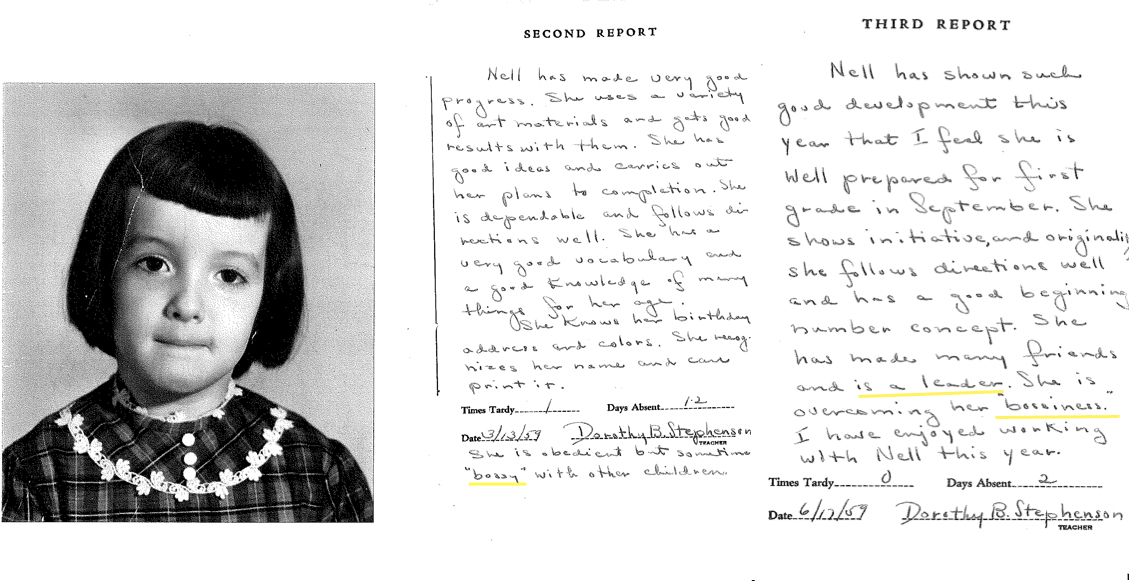 SECOND REPORT
Nell has made very good
progress. She uses a variety
of art materials and gets good
results with them. She has
good ideas and carries out
her plans to completion. She
is dependable and follows di-
rections well. She has a
very good vocabulary and
a good knowledge of many
things for her age.
She knows her birthday
address and colors. She recog-
nizes her name and can
print it.
Times Tardy 1 Days Absent 12
Date 3/13/59 Dorothy B. Stephenson
TEACHER
She is obedient but sometime
"bossy" with other children.
THIRD REPORT
Nell has shown such
good development this
year that I feel she is
well prepared for first
grade in September. She
shows initiative, and originali
she follows directions well
and has a good beginning
number concept. She
has made many friends
and is a leader. She is
overcoming her "bossiness."
I have enjoyed working
with Nell this year.
Times Tardy 0 Days Absent 2
Date 6/17/59 Dorothy B. Stephenson
TEACHER